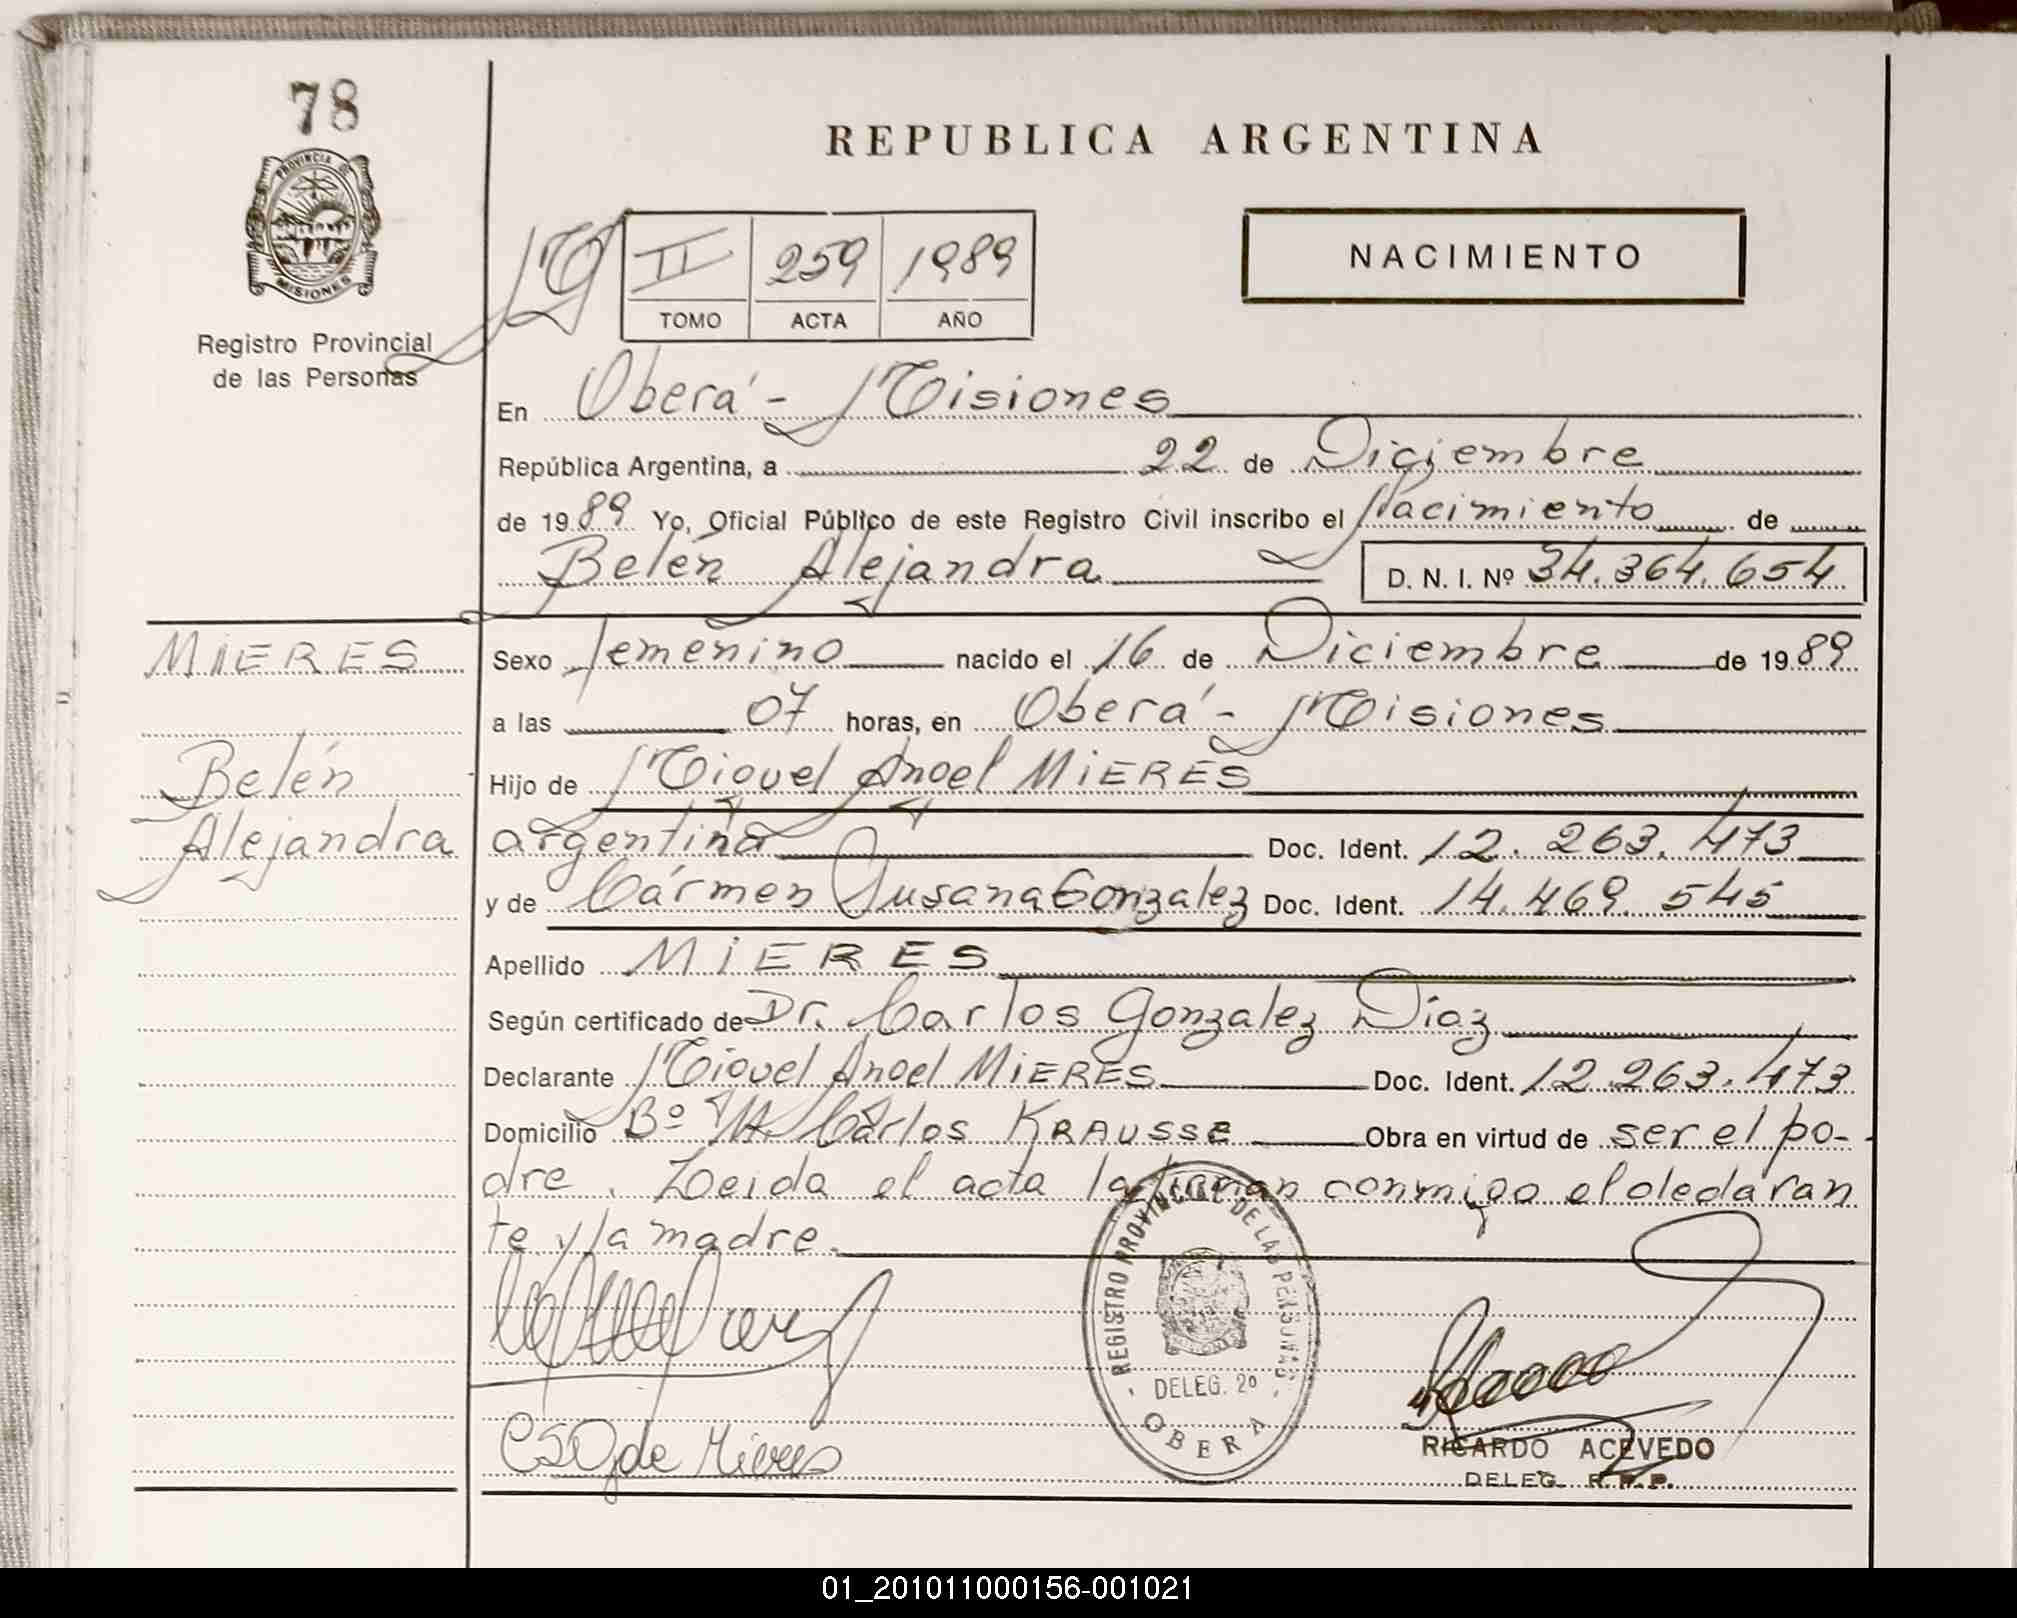 78
PROVINCIA DE
MISIONES
Registro Provincial
de las Personas
REPUBLICA ARGENTINA
NACIMIENTO
II 259 1989
TOMO ACTA AÑO
En Oberá - Misiones
República Argentina, a 22 de Diciembre
de 1989 Yo, Oficial Público de este Registro Civil inscribo el Nacimiento de
Belén Alejandra D. N. I. Nº 34.364.654
MIERES
Belén
Alejandra
Sexo femenino nacido el 16 de Diciembre de 1989
a las 07 horas, en Oberá - Misiones
Hijo de Miguel Angel MIERES
argentina Doc. Ident. 12.263.473
y de Cármen Susana Gonzalez Doc. Ident. 14.469.545
Apellido MIERES
Según certificado de Dr. Carlos Gonzalez Díaz
Declarante Miguel Angel MIERES Doc. Ident. 12.263.473
Domicilio Bº Carlos KRAUSSE Obra en virtud de ser el pa-
dre. Leida el acta la firman conmigo el declaran
te y la madre.
REGISTRO PROVINCIAL DE LAS PERSONAS
DELEG. 2º
OBERA
de Mieres
RICARDO ACEVEDO
DELEG. R.P.P.
01_201011000156-001021